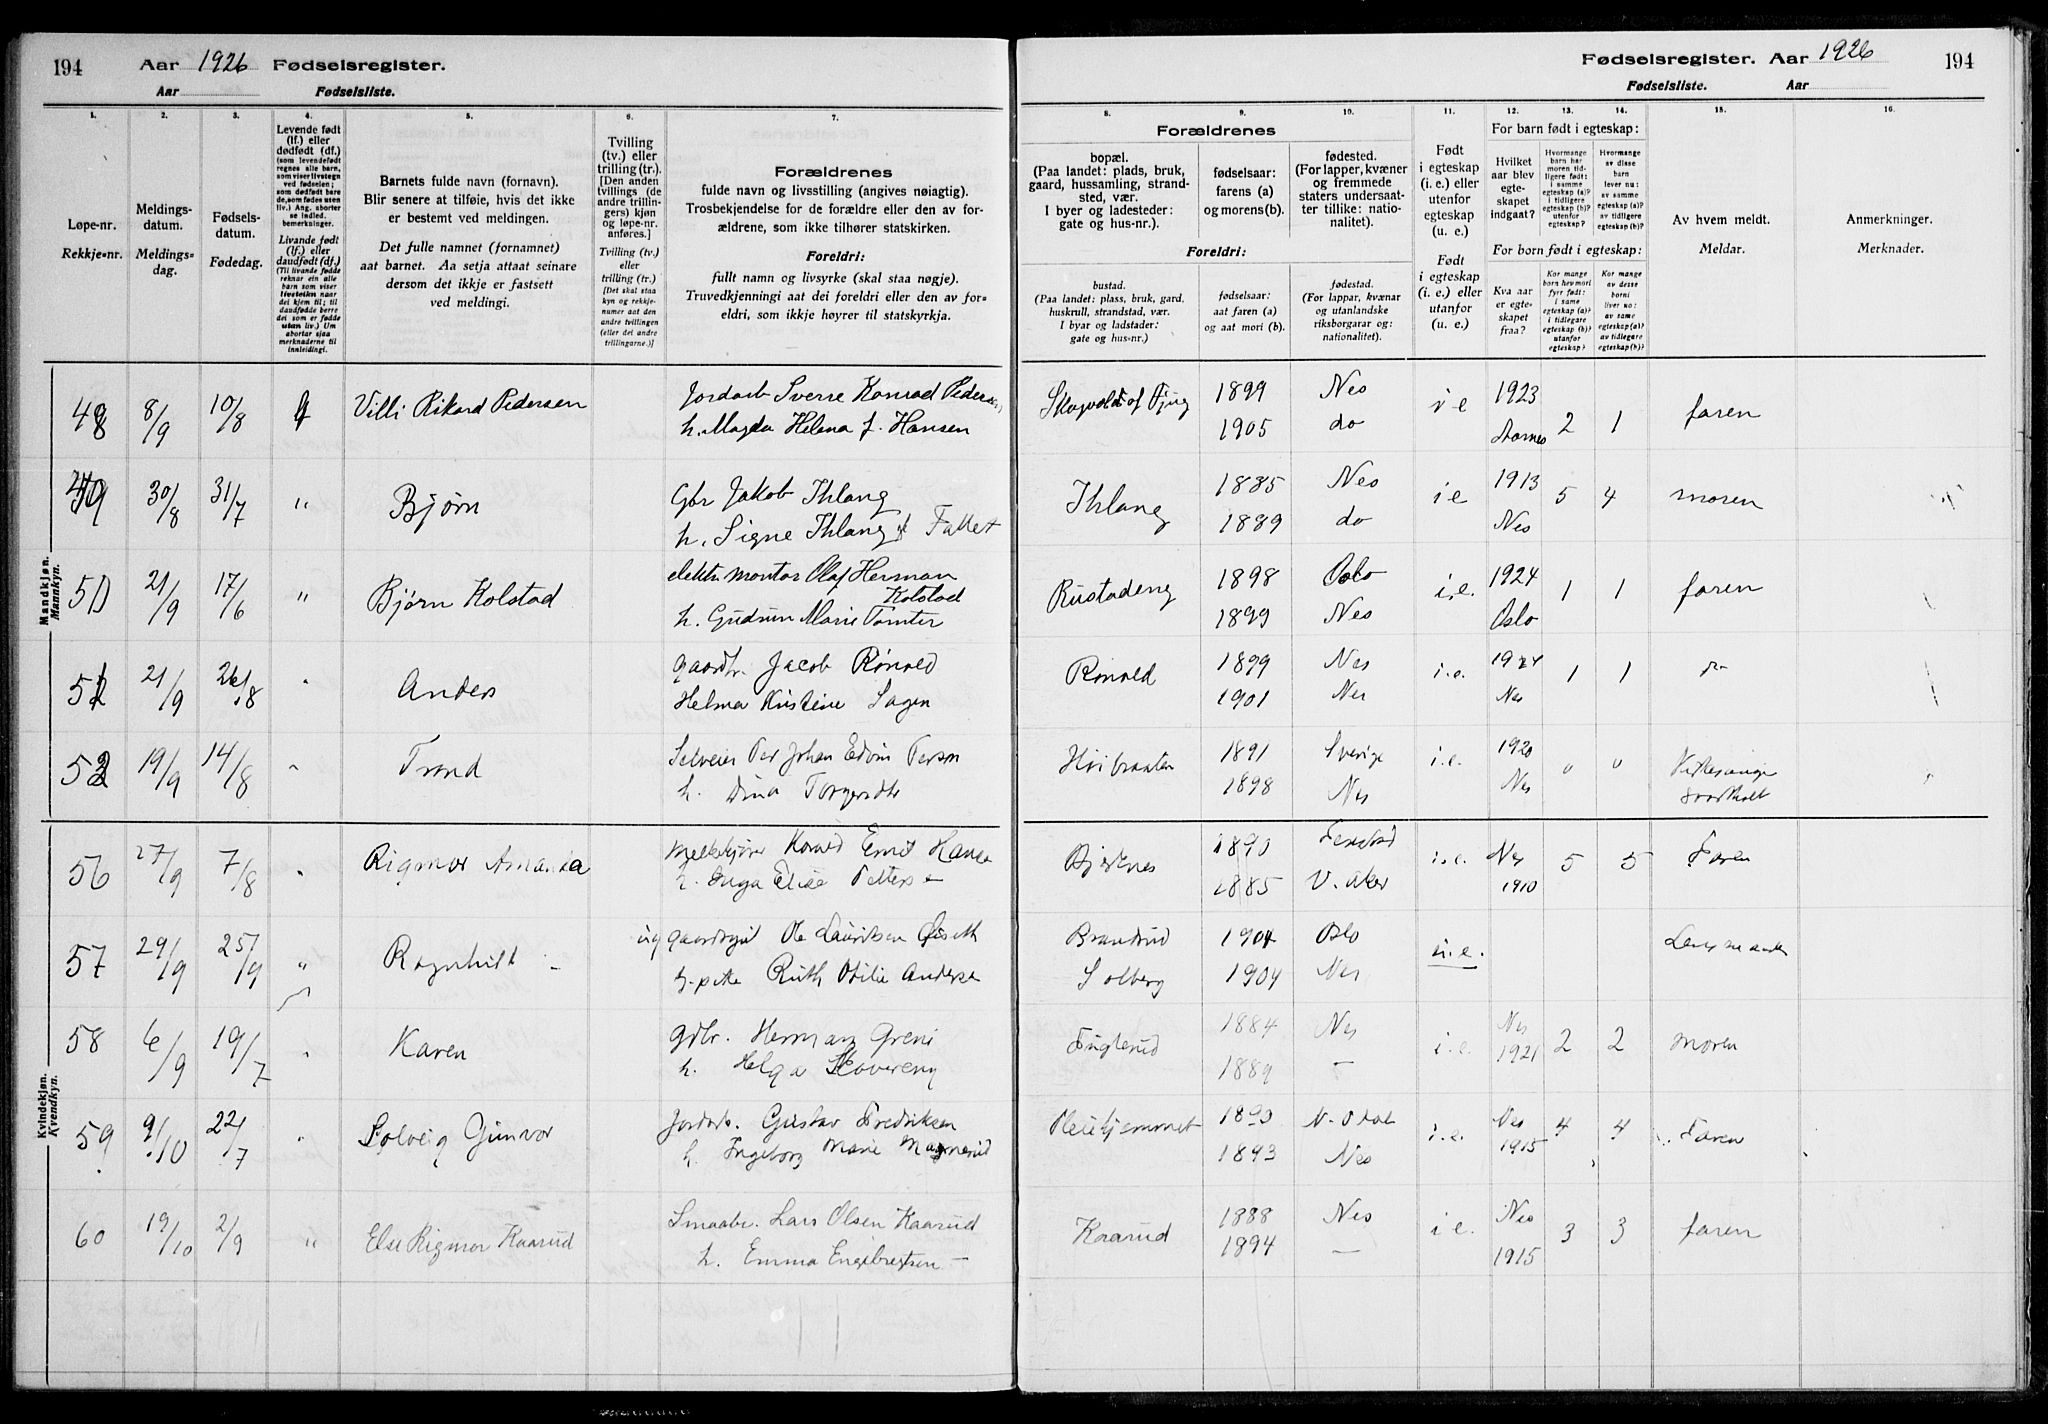 194 Aar 1926 Fødselsregister.
Aar Fødselsliste.
Fødselsregister. Aar 1926 194
Fødselsliste. Aar
1. 2. 3. 4. 5. 6. 7.
Løpe-nr.
Rekkje-nr.
Meldings-
datum.
Meldings-
dag.
Fødsels-
datum.
Fødedag.
Levende født
(lf.) eller
dødfødt (df.)
(som levendefødt
regnes alle barn,
som viser livstegn
ved fødselen;
som dødfødt bare
de, som fødes uten
liv.) Ang. aborter
se indled.
bemerkninger.
Livande født
(lf.) eller
daudfødt (df.)
(Til livande fødde
reknar ein alle
barn som viser
livsteikn naar
dei kjem til; til
daudfødde berre
dei som er fødde
utan liv.) Um
abortar sjaa
merknaderne til
innleidingi.
Barnets fulde navn (fornavn).
Blir senere at tilføie, hvis det ikke
er bestemt ved meldingen.
Det fulle namnet (fornamnet)
aat barnet. Aa setja attaat seinare
dersom det ikkje er fastsett
ved meldingi.
Tvilling
(tv.) eller
trilling (tr.).
[Den anden
tvillings (de
andre trillin-
gers) kjøn
og løpe-nr.
anføres.]
Tvilling (tv.)
eller
trilling (tr.)
[Det skal staa
kyn og rekkje-
numer aat den
andre tvillingen
(eller dei andre
trillingarne.)]
Forældrenes
fulde navn og livsstilling (angives nøiagtig).
Trosbekjendelse for de forældre eller den av for-
ældrene, som ikke tilhører statskirken.
Foreldri:
fullt namn og livsyrke (skal staa nøgje).
Truvedkjenningi aat dei foreldri eller den av for-
eldri, som ikkje høyrer til statskyrkja.
8. 9. 10. 11. 12. 13. 14. 15. 16.
Forældrenes
bopæl.
(Paa landet: plads, bruk,
gaard, hussamling, strand-
sted, vær.
I byer og ladesteder:
gate og hus-nr.).
Foreldri:
bustad.
(Paa landet: plass, bruk, gard,
huskrull, strandstad, vær.
I byar og ladstader:
gate og hus-nr.)
fødselsaar:
farens (a)
og morens (b).
fødselsaar:
aat faren (a)
og aat mori (b).
fødested.
(For lapper, kvæner
og fremmede
staters undersaat-
ter tillike: natio-
nalitet).
fødestad.
(For lappar, kvænar
og utanlandske
riksborgarar og:
nationalitet).
Født
i egteskap
(i. e.) eller
utenfor
egteskap
(u. e.)
Født
i egteskap
(i. e.) eller
utanfor
(u. e.)
For barn født i egteskap:
Hvilket
aar blev
egte-
skapet
indgaat?
Hvormange
barn har
moren tid-
ligere født:
i samme
egteskap (a)?
i tidligere
egteskap (b)?
utenfor
egteskap?
Hvormange
av disse
barn
lever nu:
av samme
egteskap (a)?
av tidligere
egteskap (b)?
For born født i egteskap:
Kva aar
er egte-
skapet
fraa?
Kor mange
born hev mori
fyrr født:
i same
egteskap (a)?
i tidlegare
egteskap (b)?
utanfor
egteskap?
Kor mange
av desse
borni
liver no:
av same
egteskap (a)?
av tidlegare
egteskap (b)?
Av hvem meldt.
Meldar.
Anmerkninger.
Merknader.
Mandkjøn.
Mannkyn.
48 8/9 10/8 Villi Rikard Pedersen Jordarb Sverre Konrad Pedersen 1899 Nes i e 1923 2 1 faren
h. Magda Helena f. Hansen 1905 do Aarnes
49 30/8 31/7 " Bjørn Gbr Jakob Ihlang Ihlang 1885 Nes i e 1913 5 4 moren
h. Signe Ihlang f Fallet 1889 do Nes
50 21/9 17/6 " Bjørn Kolstad elektr montør Olaf Herman Kolstad Rustadeng 1898 Oslo i.e. 1924 1 1 faren
h. Gudrun Marie Tomter 1899 Nes Oslo
51 21/9 26/8 " Anders gaardbr. Jacob Rønold Rønold 1899 Nes i.e. 1924 1 1
Helma Kristine Sagen 1901 Nes Nes
52 19/9 14/8 " Trond Selveier Per Johan Edvin Person Hvibraaten 1891 Sverige i.e. 1920 " "
h. Dina Torgersdtr 1898 Nes Nes
Kvindekjøn.
Kvendkyn.
56 27/9 7/8 " Rigmor Amanda Konrad Emil Hansen 1890 i.e. Nes 5 5 Faren
h. Inga Elise 1885 V. Aker 1910
57 29/9 25/9 " Ragnhild ug Ole Lauritsen Brandrud 1904 Oslo u.e.
Ruth Otilie Andersen Solberg 1904 Nes
58 6/9 19/7 " Karen gdbr. Herman Greni Fuglerud 1884 Nes i.e. Nes 2 2 moren
h. Helga Skovereng 1889 — 1921
59 9/10 22/7 " Solveig Gunvor Jordarb. Gustav Fredriksen 1890 N. Odal i.e. Nes 4 4 Faren
h. Ingeborg Marie 1893 Nes 1915
60 19/10 2/9 " Else Rigmor Kaarud Smaabr. Lars Olsen Kaarud Kaarud 1888 Nes i e. Nes 3 3 faren
h. Emma Engebretsen — 1894 — 1915